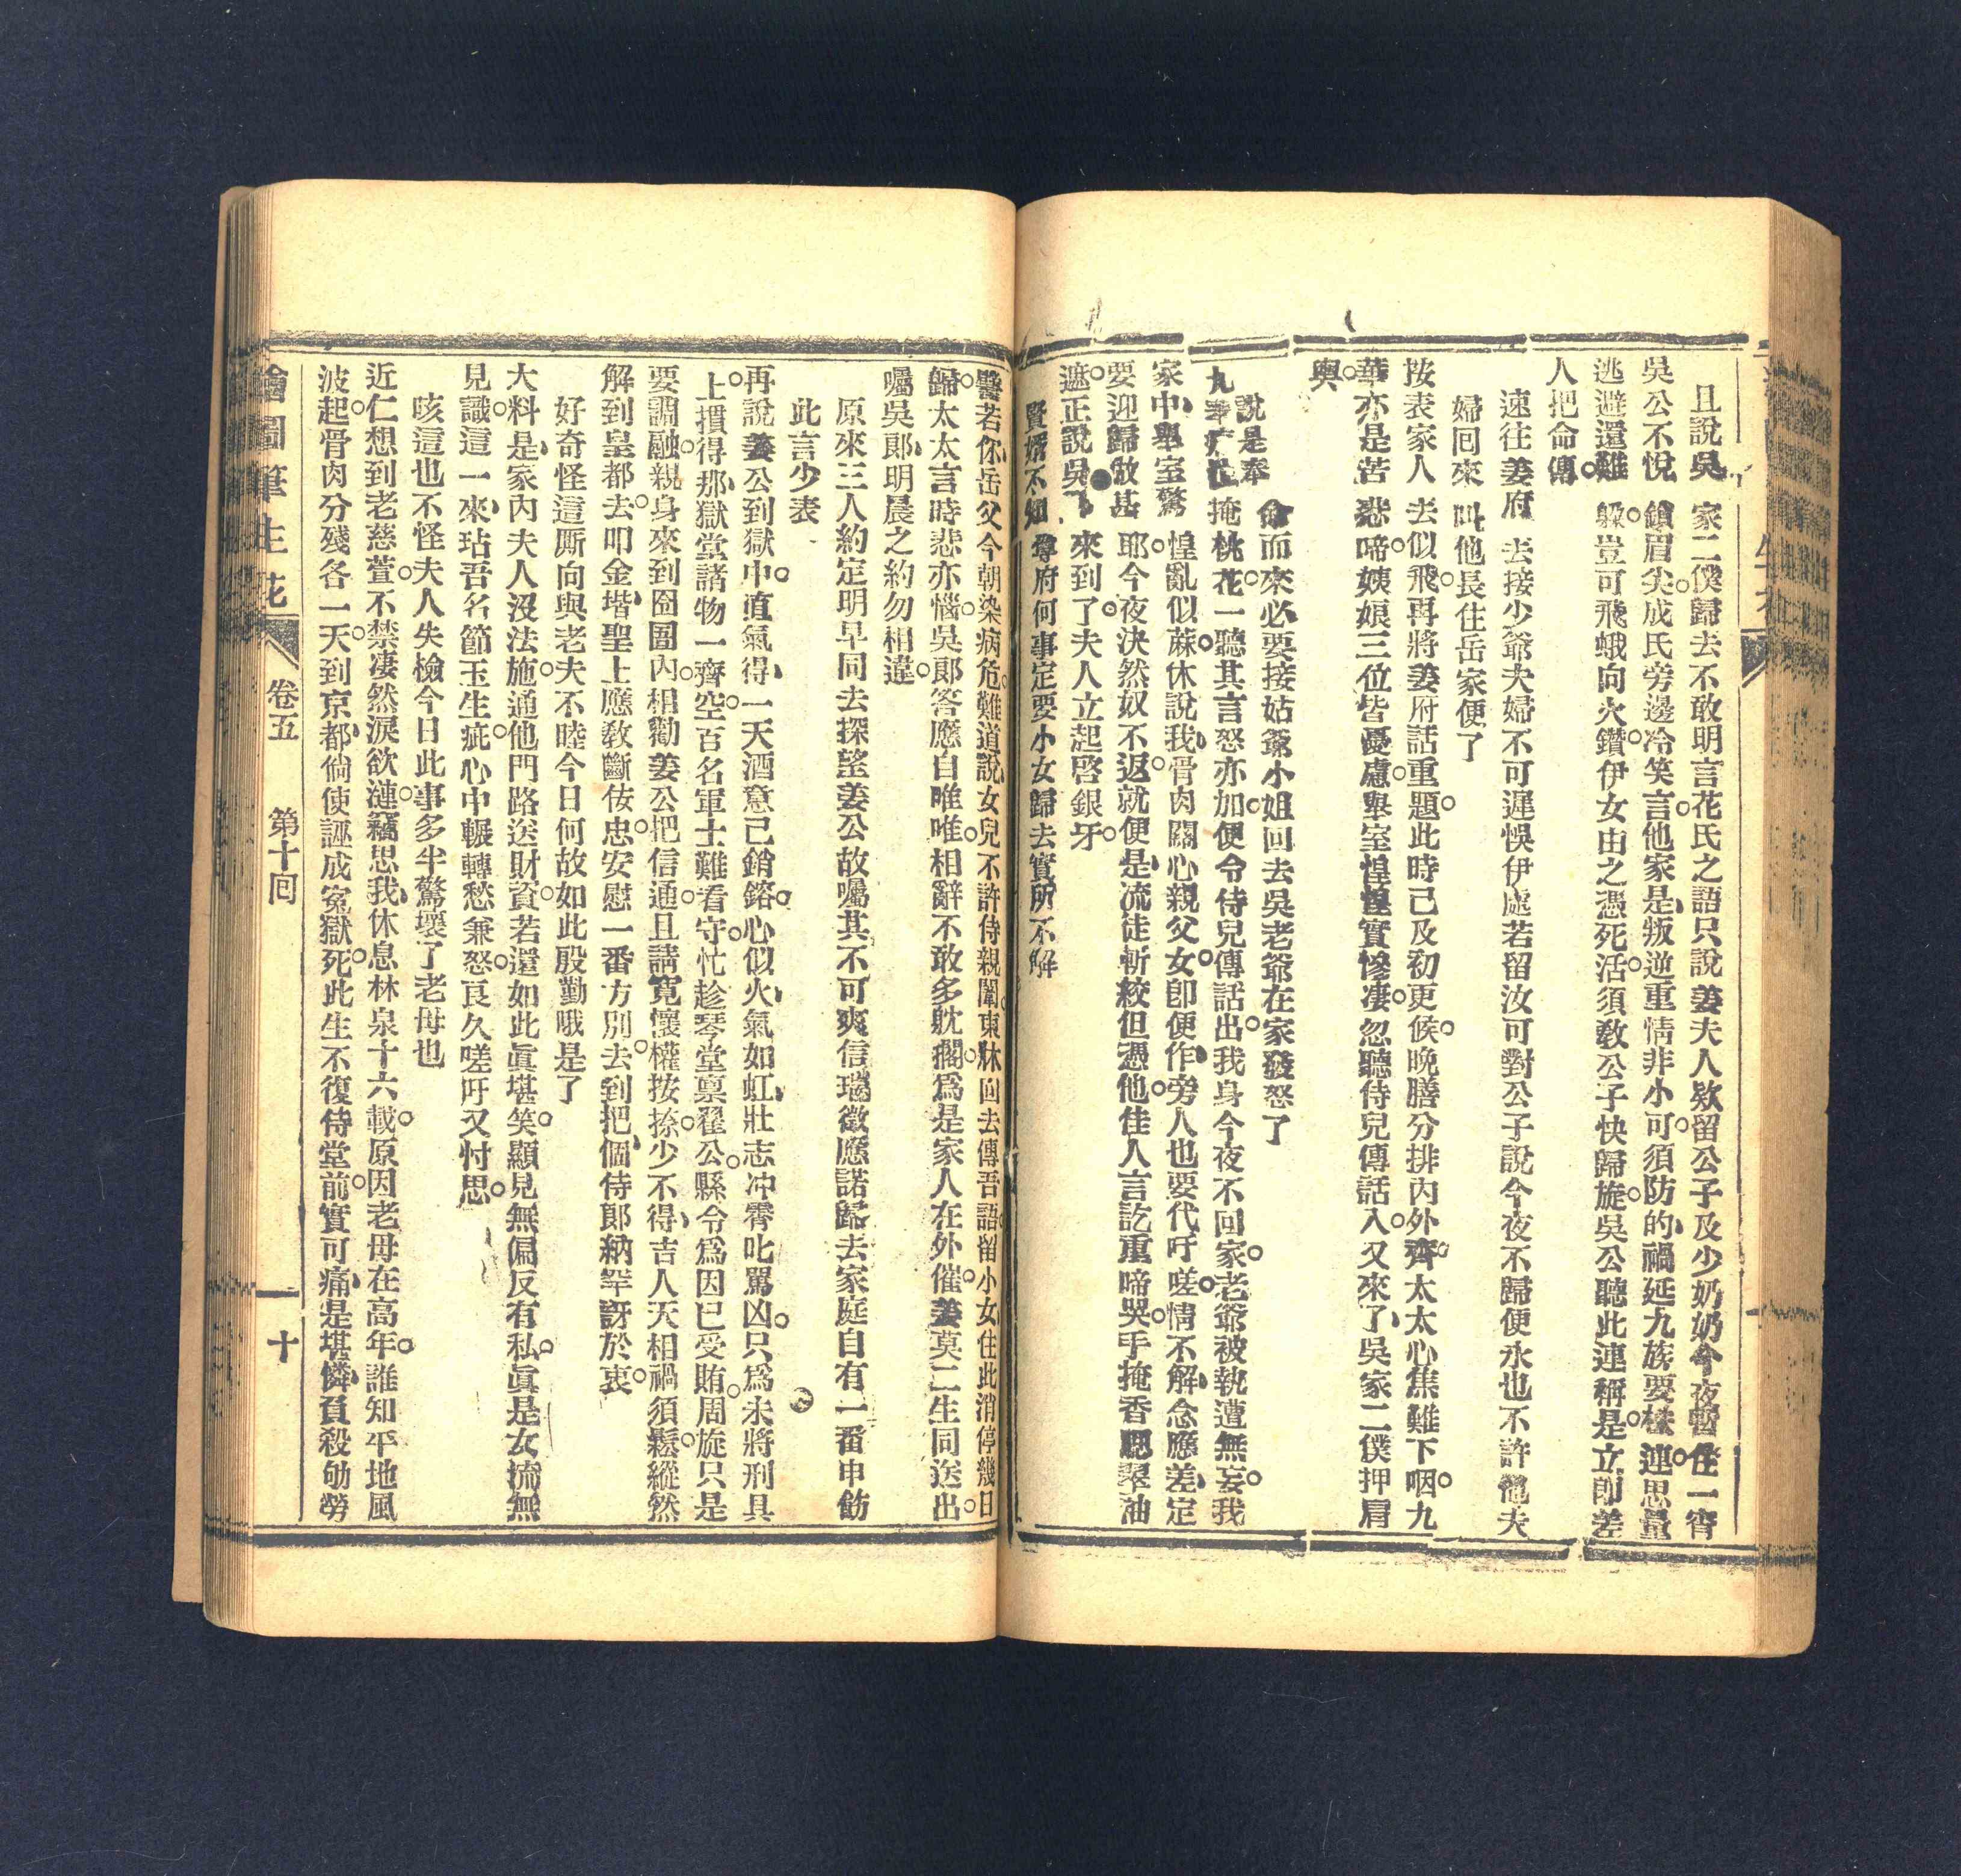 且說吳家二僕歸去不敢明言花氏之語只說姜夫人欵留公子及少奶奶今夜暫住一宵
吳公不悅鎖眉尖。成氏旁邊冷笑言。他家是叛逆重情非小可。須防的禍延九族要株連。思量
逃避還難躲。豈可飛蛾向火鑽。伊女由之憑死活。須敎公子快歸旋。吳公聽此連稱是。立即差
人把命傳。
速往姜府去接少爺夫婦不可遲悞伊處若留汝可對公子說今夜不歸便永也不許他夫
婦囘來叫他長住岳家便了
按表家人去似飛。再將姜府話重題。此時已及初更候。晚膳分排內外齊。太太心焦難下咽。九
華亦是苦悲啼。姨娘三位皆憂慮。舉室惶惶實慘凄。忽聽侍兒傳話入。又來了、吳家二僕押肩
輿。
說是奉命而來必要接姑爺小姐回去吳老爺在家發怒了
掩桃花。一聽其言怒亦加。便令侍兒傳話出。我身今夜不回家。老爺被執遭無妄。我
家中、舉室驚惶亂似蔴。休說我、骨肉關心親父女。卽便作、旁人也要代吁嗟。情不解、念應差、定
要迎歸做甚耶。今夜決然奴不返。就便是、流徒斬絞但憑他。佳人言訖重啼哭。手掩香腮翠油
遮。正說吳來到了。夫人立起啓銀牙。
賢壻不知尊府何事定要小女歸去實所不解
醫若你、岳父今朝染病危。難道說、女兒不許侍親闈。東牀回去傳吾語。留小女住此消停幾日
歸。太太言時悲亦惱。吳郞答應自唯唯。相辭不敢多躭擱。爲是家人在外催。姜莫二生同送出。
囑吳郞、明晨之約勿相違。
原來三人約定明早同去探望姜公故囑其不可爽信瑞徵應諾歸去家庭自有一番申飭
此言少表
再說姜公到獄中。直氣得、一天酒意已銷鎔。心似火、氣如虹、壯志冲霄叱罵凶。只爲未將刑具
上。摜得那、獄堂諸物一齊空。百名軍士難看守。忙趁琴堂禀翟公。縣令爲因已受賄。周旋只是
要調融。親身來到囹圄內。相勸姜公把信通。且請寬懷權按捺。少不得、吉人天相禍須鬆。縱然
解到皇都去。叩金堦、聖上應敎斷佞忠。安慰一番方別去。到把個、侍郞納罕訝於衷。
好奇怪這厮向與老夫不睦今日何故如此殷勤哦是了
大料是、家內夫人沒法施。通他門路送財資。若還如此眞堪笑。顯見無偏反有私。眞是女流無
見識。這一來、玷吾名節玉生疵。心中輾轉愁兼怒。良久嗟吁又忖思。
咳這也不怪夫人失檢今日此事多半驚壞了老母也
近仁想到老慈萱。不禁凄然淚欲漣。竊思我、休息林泉十六載。原因老母在高年。誰知平地風
波起。骨肉分殘各一天。到京都、倘使誣成寃獄死。此生不復侍堂前。實可痛、是堪憐、負殺劬勞
繪圖筆生花
卷五
第十回
十